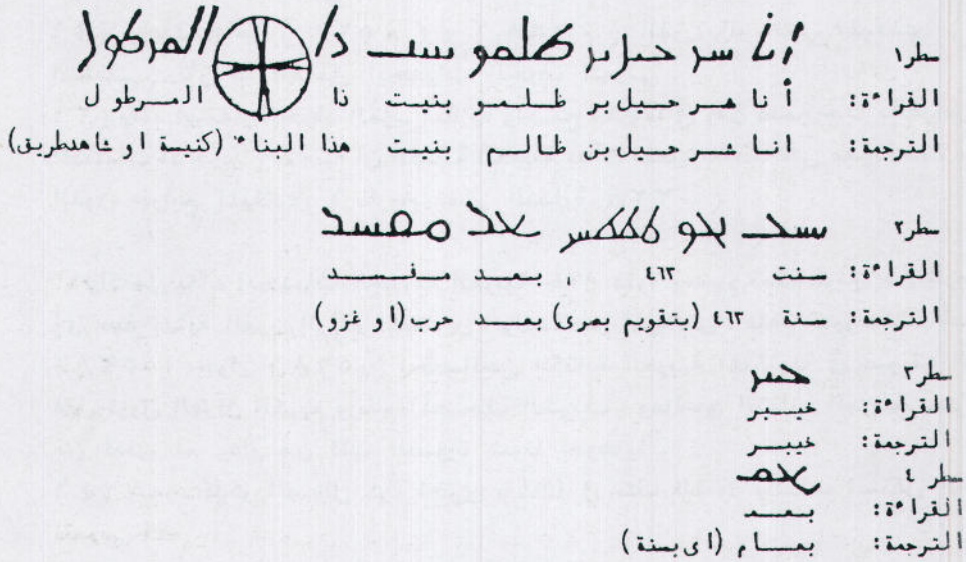 سطر١ أنا سرحىل بر طلمو ىىىت دا المرطول
القراءة: أنا شرحيل بر ظلمو بنيت ذا المرطول
الترجمة: انا شرحبيل بن ظالم بنيت هذا البناء (كنيسة او شاهدطريق)
سطر٢ سىت
القراءة: سنت ٤٦٣ بعد مفسد
الترجمة: سنة ٤٦٣ (بتقويم بصرى) بعد حرب(او غزو)
سطر٣ حىىر
القراءة: خيبر
الترجمة: خيبر
سطر٤ ىعم
القراءة:
الترجمة: بعام (اى بسنة)